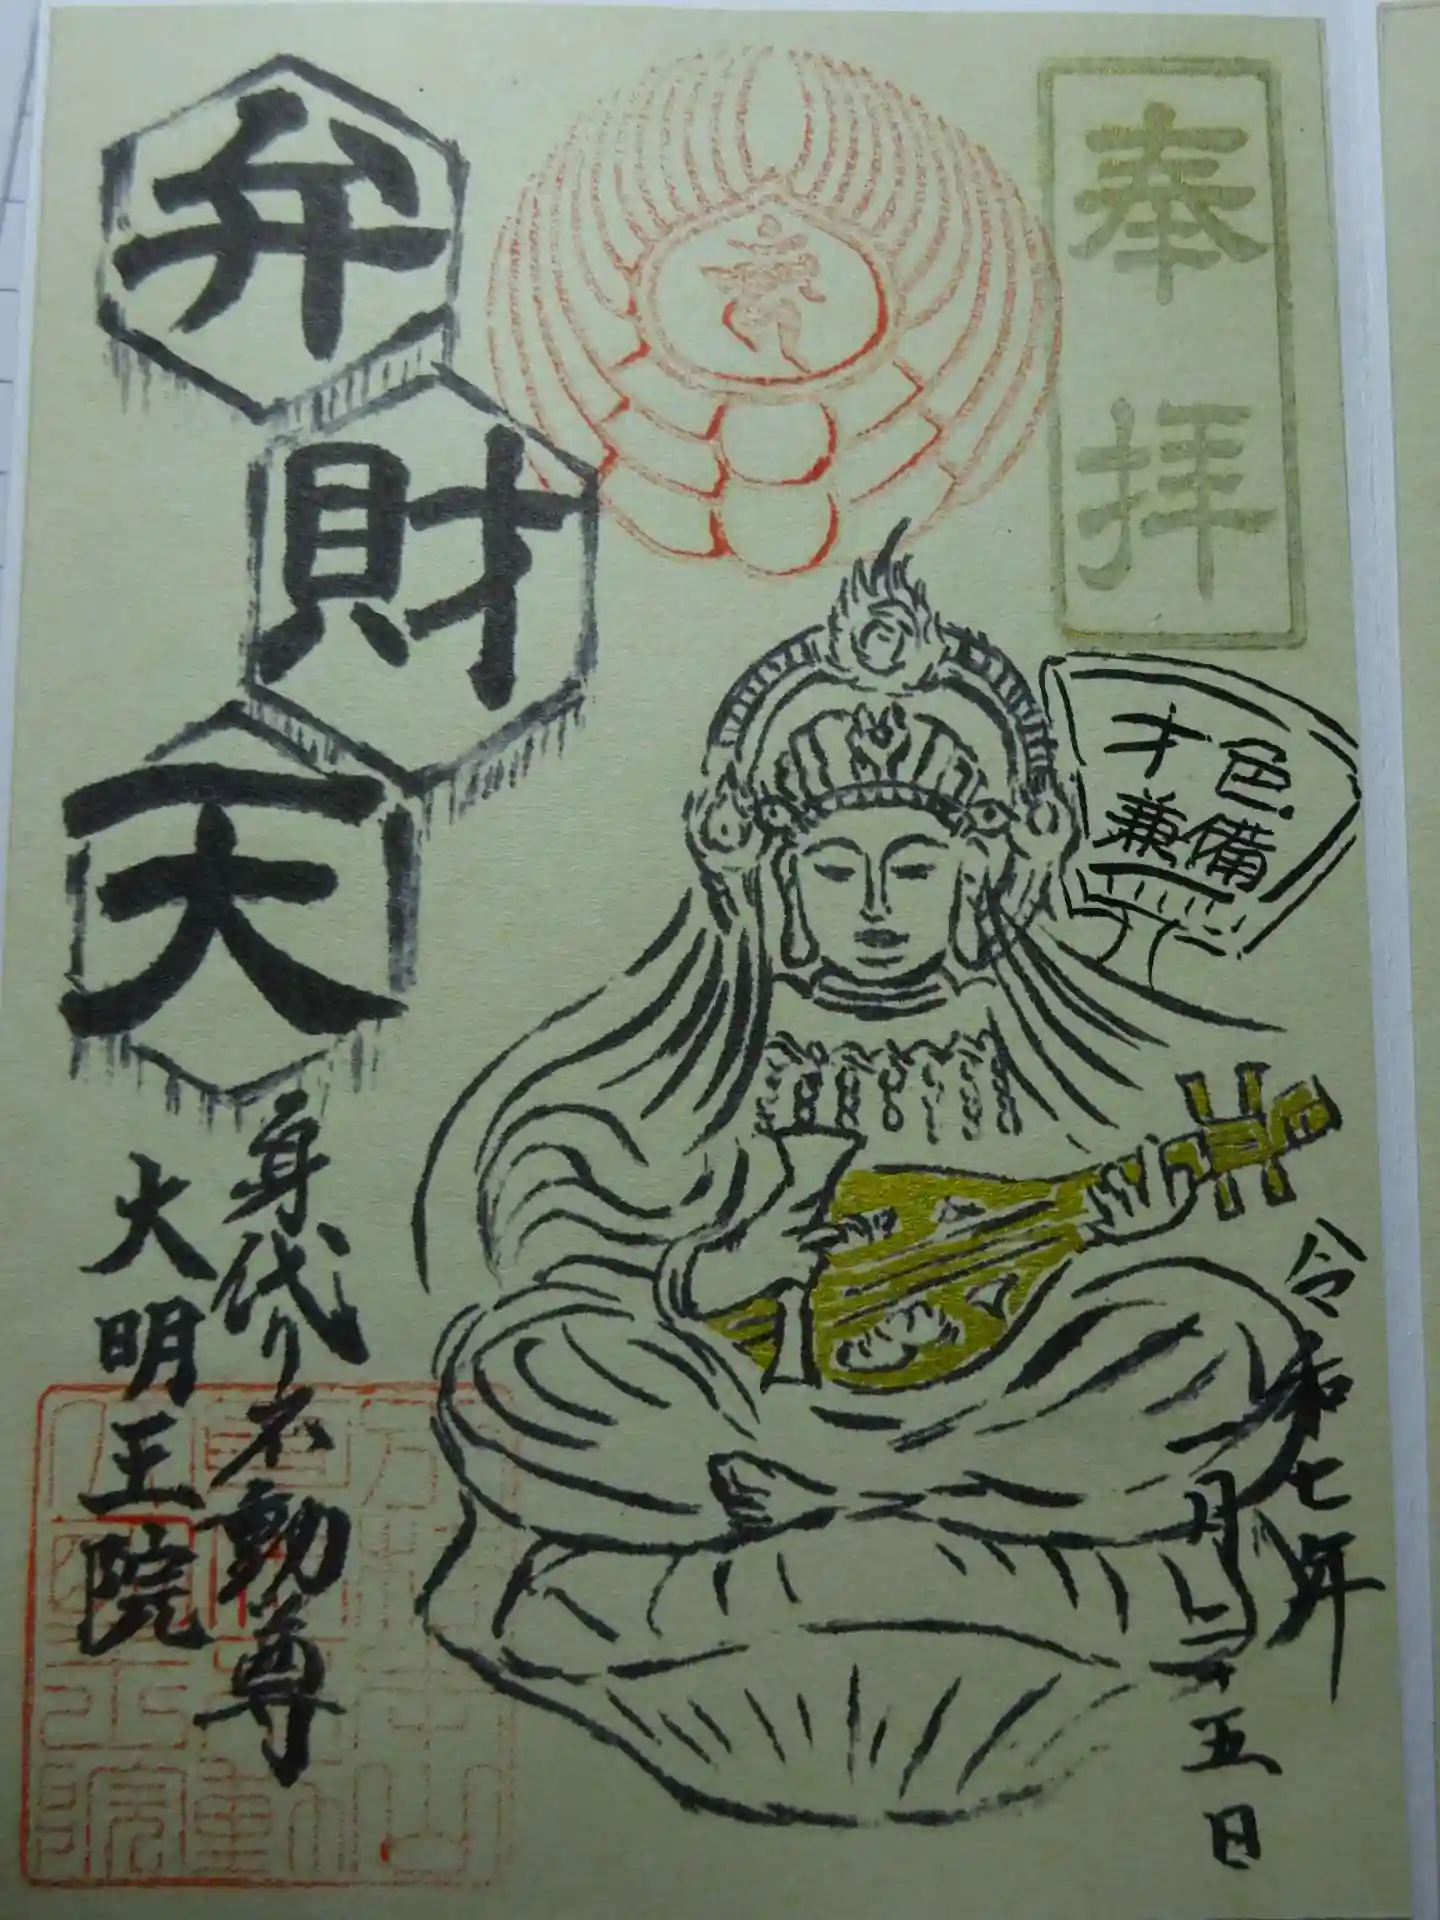 奉拝
才色
兼備
弁財天
令和七年
月二十五日
身代り不動尊
大明王院